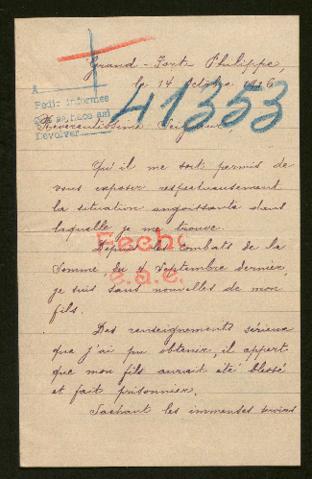 Grand-Fort Philippe,
le 14 Octobre 1916
A
Pedir informes
Devolver
41353
Révérentissime Seigneur
Qu'il me soit permis de
vous exposer respectueusement
la situation angoissante dans
laquelle je me trouve.
Fecho
e.a.c.
Depuis les combats de la
Somme du 4 Septembre dernier,
je suis sans nouvelles de mon
fils.
Des renseignements sérieux
que j'ai pu obtenir, il appert
que mon fils aurait été blessé
et fait prisonnier.
Sachant les immenses services